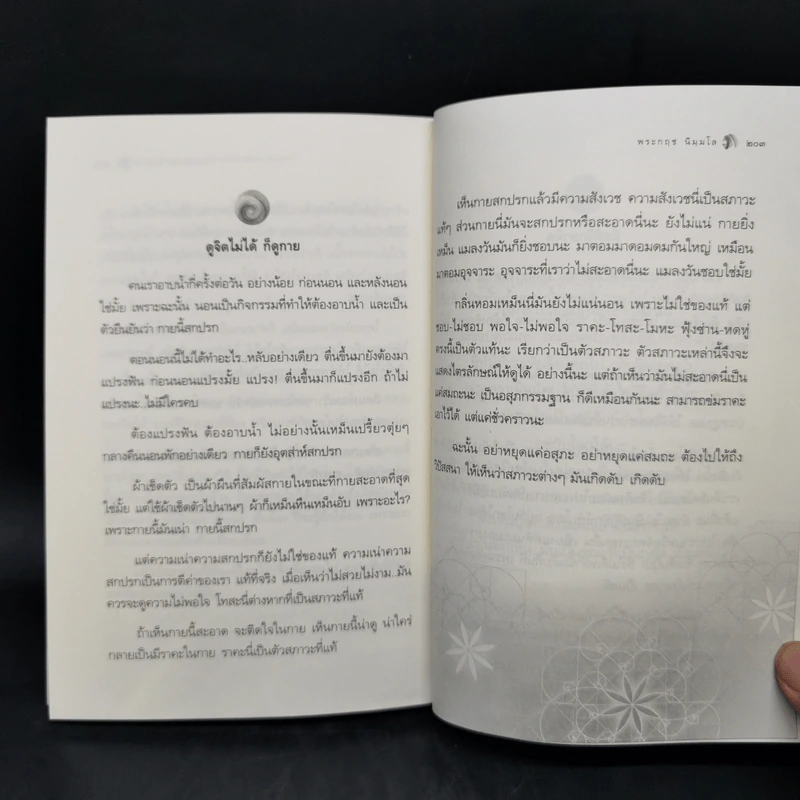 ดูจิตไม่ได้ ก็ดูกาย
คนเราอาบน้ำกี่ครั้งต่อวัน อย่างน้อย ก่อนนอน และหลังนอน
ใช่มั้ย เพราะฉะนั้น นอนเป็นกิจกรรมที่ทำให้ต้องอาบน้ำ และเป็น
ตัวยืนยันว่า กายนี้สกปรก
ตอนนอนนี่ไม่ได้ทำอะไร..หลับอย่างเดียว ตื่นขึ้นมายังต้องมา
แปรงฟัน ก่อนนอนแปรงมั้ย แปรง! ตื่นขึ้นมาก็แปรงอีก ถ้าไม่
แปรงนะ..ไม่มีใครคบ
ต้องแปรงฟัน ต้องอาบน้ำ ไม่อย่างนั้นเหม็นเปรี้ยวตุ่ยๆ
กลางคืนนอนพักอย่างเดียว กายก็ยังอุตส่าห์สกปรก
ผ้าเช็ดตัว เป็นผ้าผืนที่สัมผัสกายในขณะที่กายสะอาดที่สุด
ใช่มั้ย แต่ใช้ผ้าเช็ดตัวไปนานๆ ผ้าก็เหม็นหืนเหม็นอับ เพราะอะไร?
เพราะกายนี้มันเน่า กายนี้สกปรก
แต่ความเน่าความสกปรกก็ยังไม่ใช่ของแท้ ความเน่าความ
สกปรกเป็นการตีค่าของเรา แท้ที่จริง เมื่อเห็นว่าไม่สวยไม่งาม..มัน
ควรจะดูความไม่พอใจ โทสะนี่ต่างหากที่เป็นสภาวะที่แท้
ถ้าเห็นกายนี้สะอาด จะติดใจในกาย เห็นกายนี้น่าดู น่าใคร่
กลายเป็นมีราคะในกาย ราคะนี่เป็นตัวสภาวะที่แท้
พระกฤช นิมฺมโล ๒๐๓
เห็นกายสกปรกแล้วมีความสังเวช ความสังเวชนี่เป็นสภาวะ
แท้ๆ ส่วนกายนี่มันจะสกปรกหรือสะอาดนี่นะ ยังไม่แน่ กายยิ่ง
เหม็น แมลงวันมันก็ยิ่งชอบนะ มาตอมมาดอมดมกันใหญ่ เหมือน
มาตอมอุจจาระ อุจจาระที่เราว่าไม่สะอาดนี่นะ แมลงวันชอบใช่มั้ย
กลิ่นหอมเหม็นนี่มันยังไม่แน่นอน เพราะไม่ใช่ของแท้ แต่
ชอบ-ไม่ชอบ พอใจ-ไม่พอใจ ราคะ-โทสะ-โมหะ ฟุ้งซ่าน-หดหู่
ตรงนี้เป็นตัวแท้นะ เรียกว่าเป็นตัวสภาวะ ตัวสภาวะเหล่านี้จึงจะ
แสดงไตรลักษณ์ให้ดูได้ อย่างนี้นะ แต่ถ้าเห็นว่ามันไม่สะอาดนี่เป็น
แค่สมถะนะ เป็นอสุภกรรมฐาน ก็ดีเหมือนกันนะ สามารถข่มราคะ
เอาไว้ได้ แต่แค่ชั่วคราวนะ
ฉะนั้น อย่าหยุดแค่อสุภะ อย่าหยุดแค่สมถะ ต้องไปให้ถึง
วิปัสสนา ให้เห็นว่าสภาวะต่างๆ มันเกิดดับ เกิดดับ